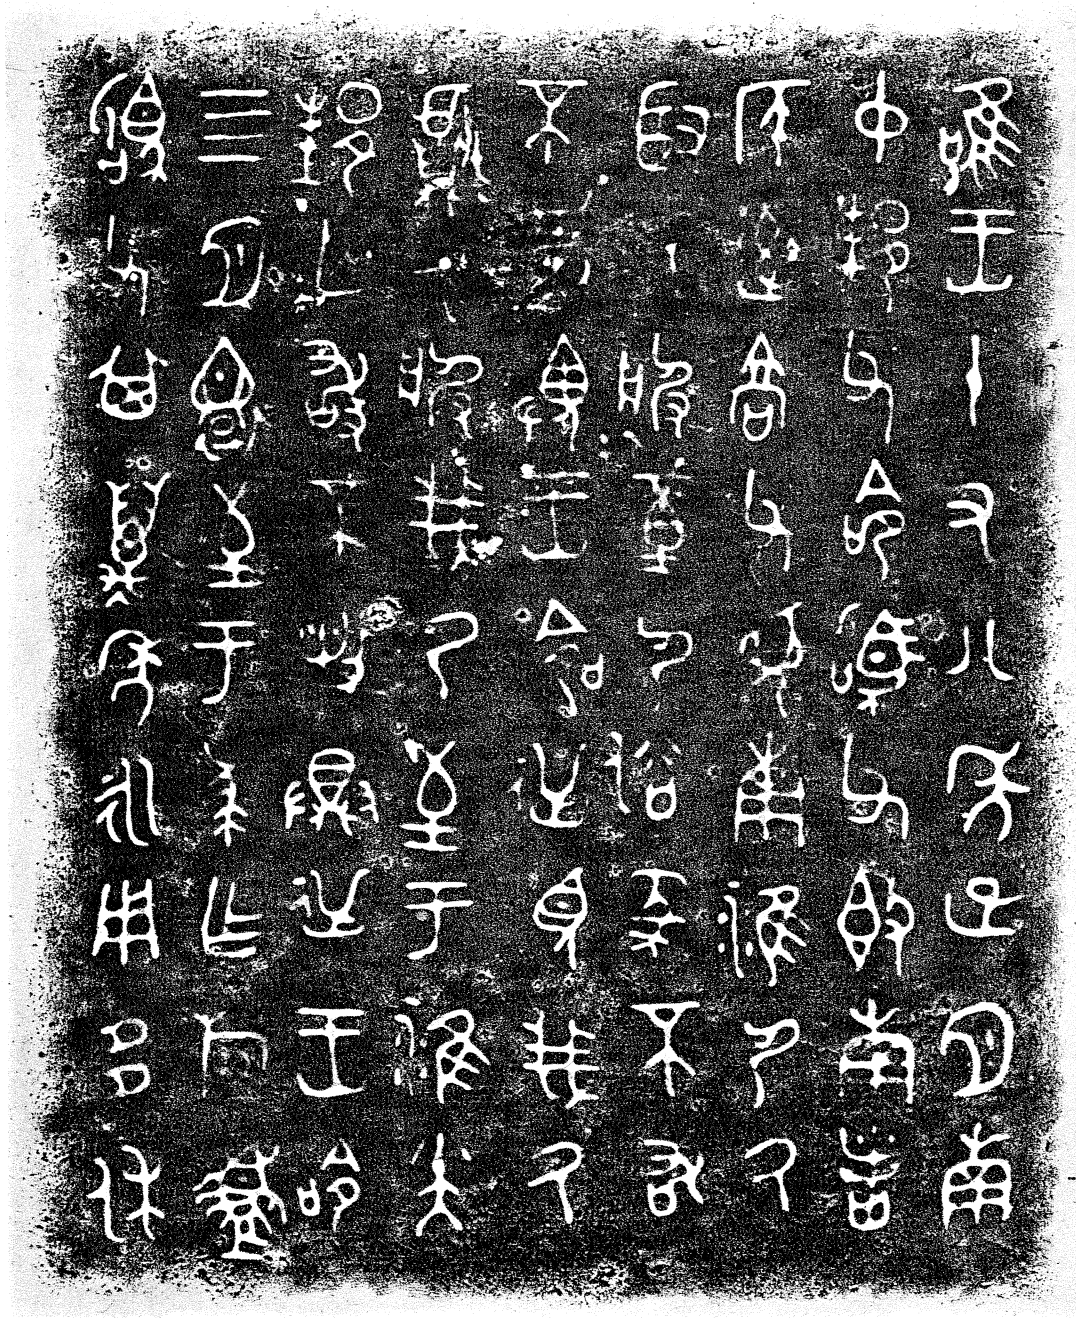 唯王十又八年正月南
中邦父命駒父即南者
侯率高父見南淮夷厥
取厥服堇夷俗彖不敢
不敬畏王命逆見我厥
獻厥服我乃至于淮小大
邦亡敢不具逆王命
四月還至于蔡乍旅盨
駒父其萬年永用多休